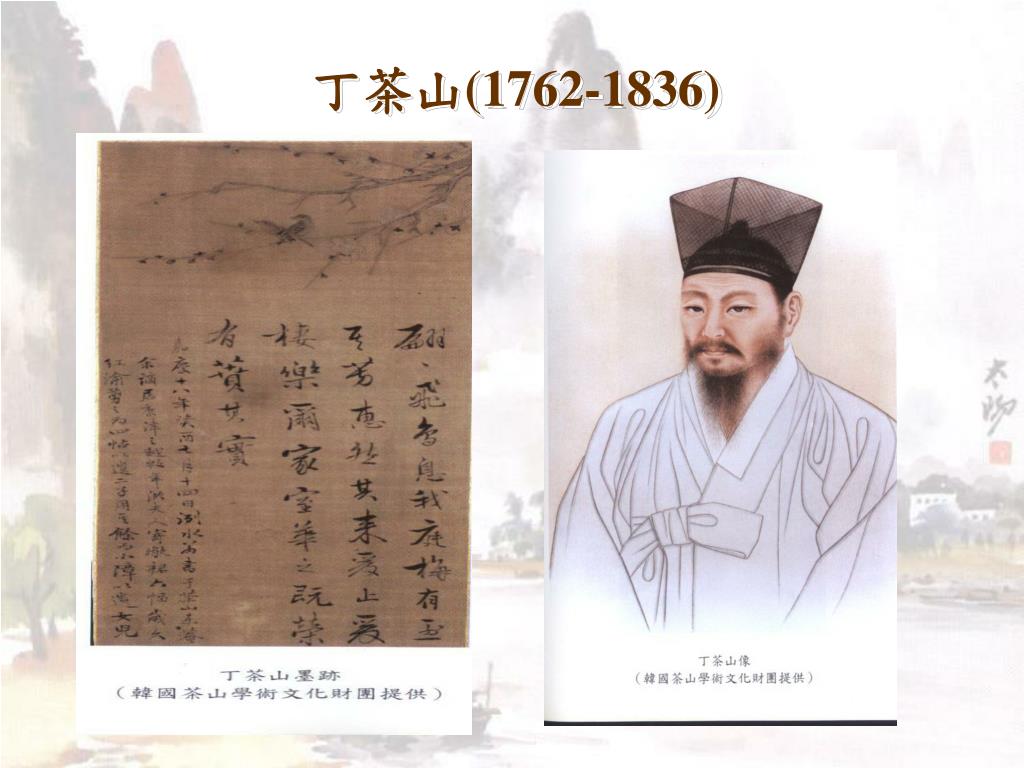 丁茶山(1762-1836)
翩、飛鳥息我庭梅有烈
其芳惠然其來爰止爰
棲樂爾家室華之既榮
有蕡其實
嘉慶十八年癸酉七月十四日洌水翁書于茶山東菴
余謫居康津之越數年洪夫人寄敝裙六幅歲久
紅渝剪之為四帖以遺二子用其餘為小障以遺女兒
丁茶山墨跡
(韓國茶山學術文化財團提供)
丁茶山像
(韓國茶山學術文化財團提供)